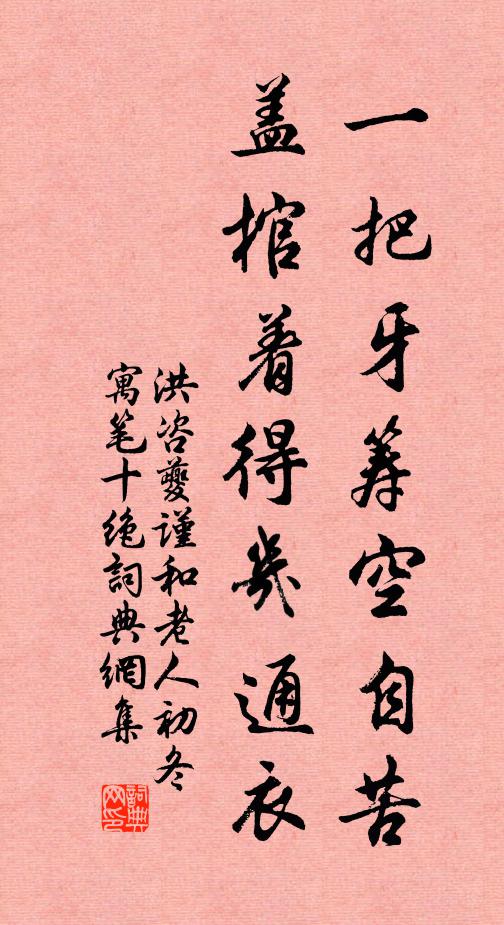 一把牙筹空自苦
盖棺着得几通衣
洪咨夔谨和老人初冬
寓笔十绝詞典網集
詞典網印